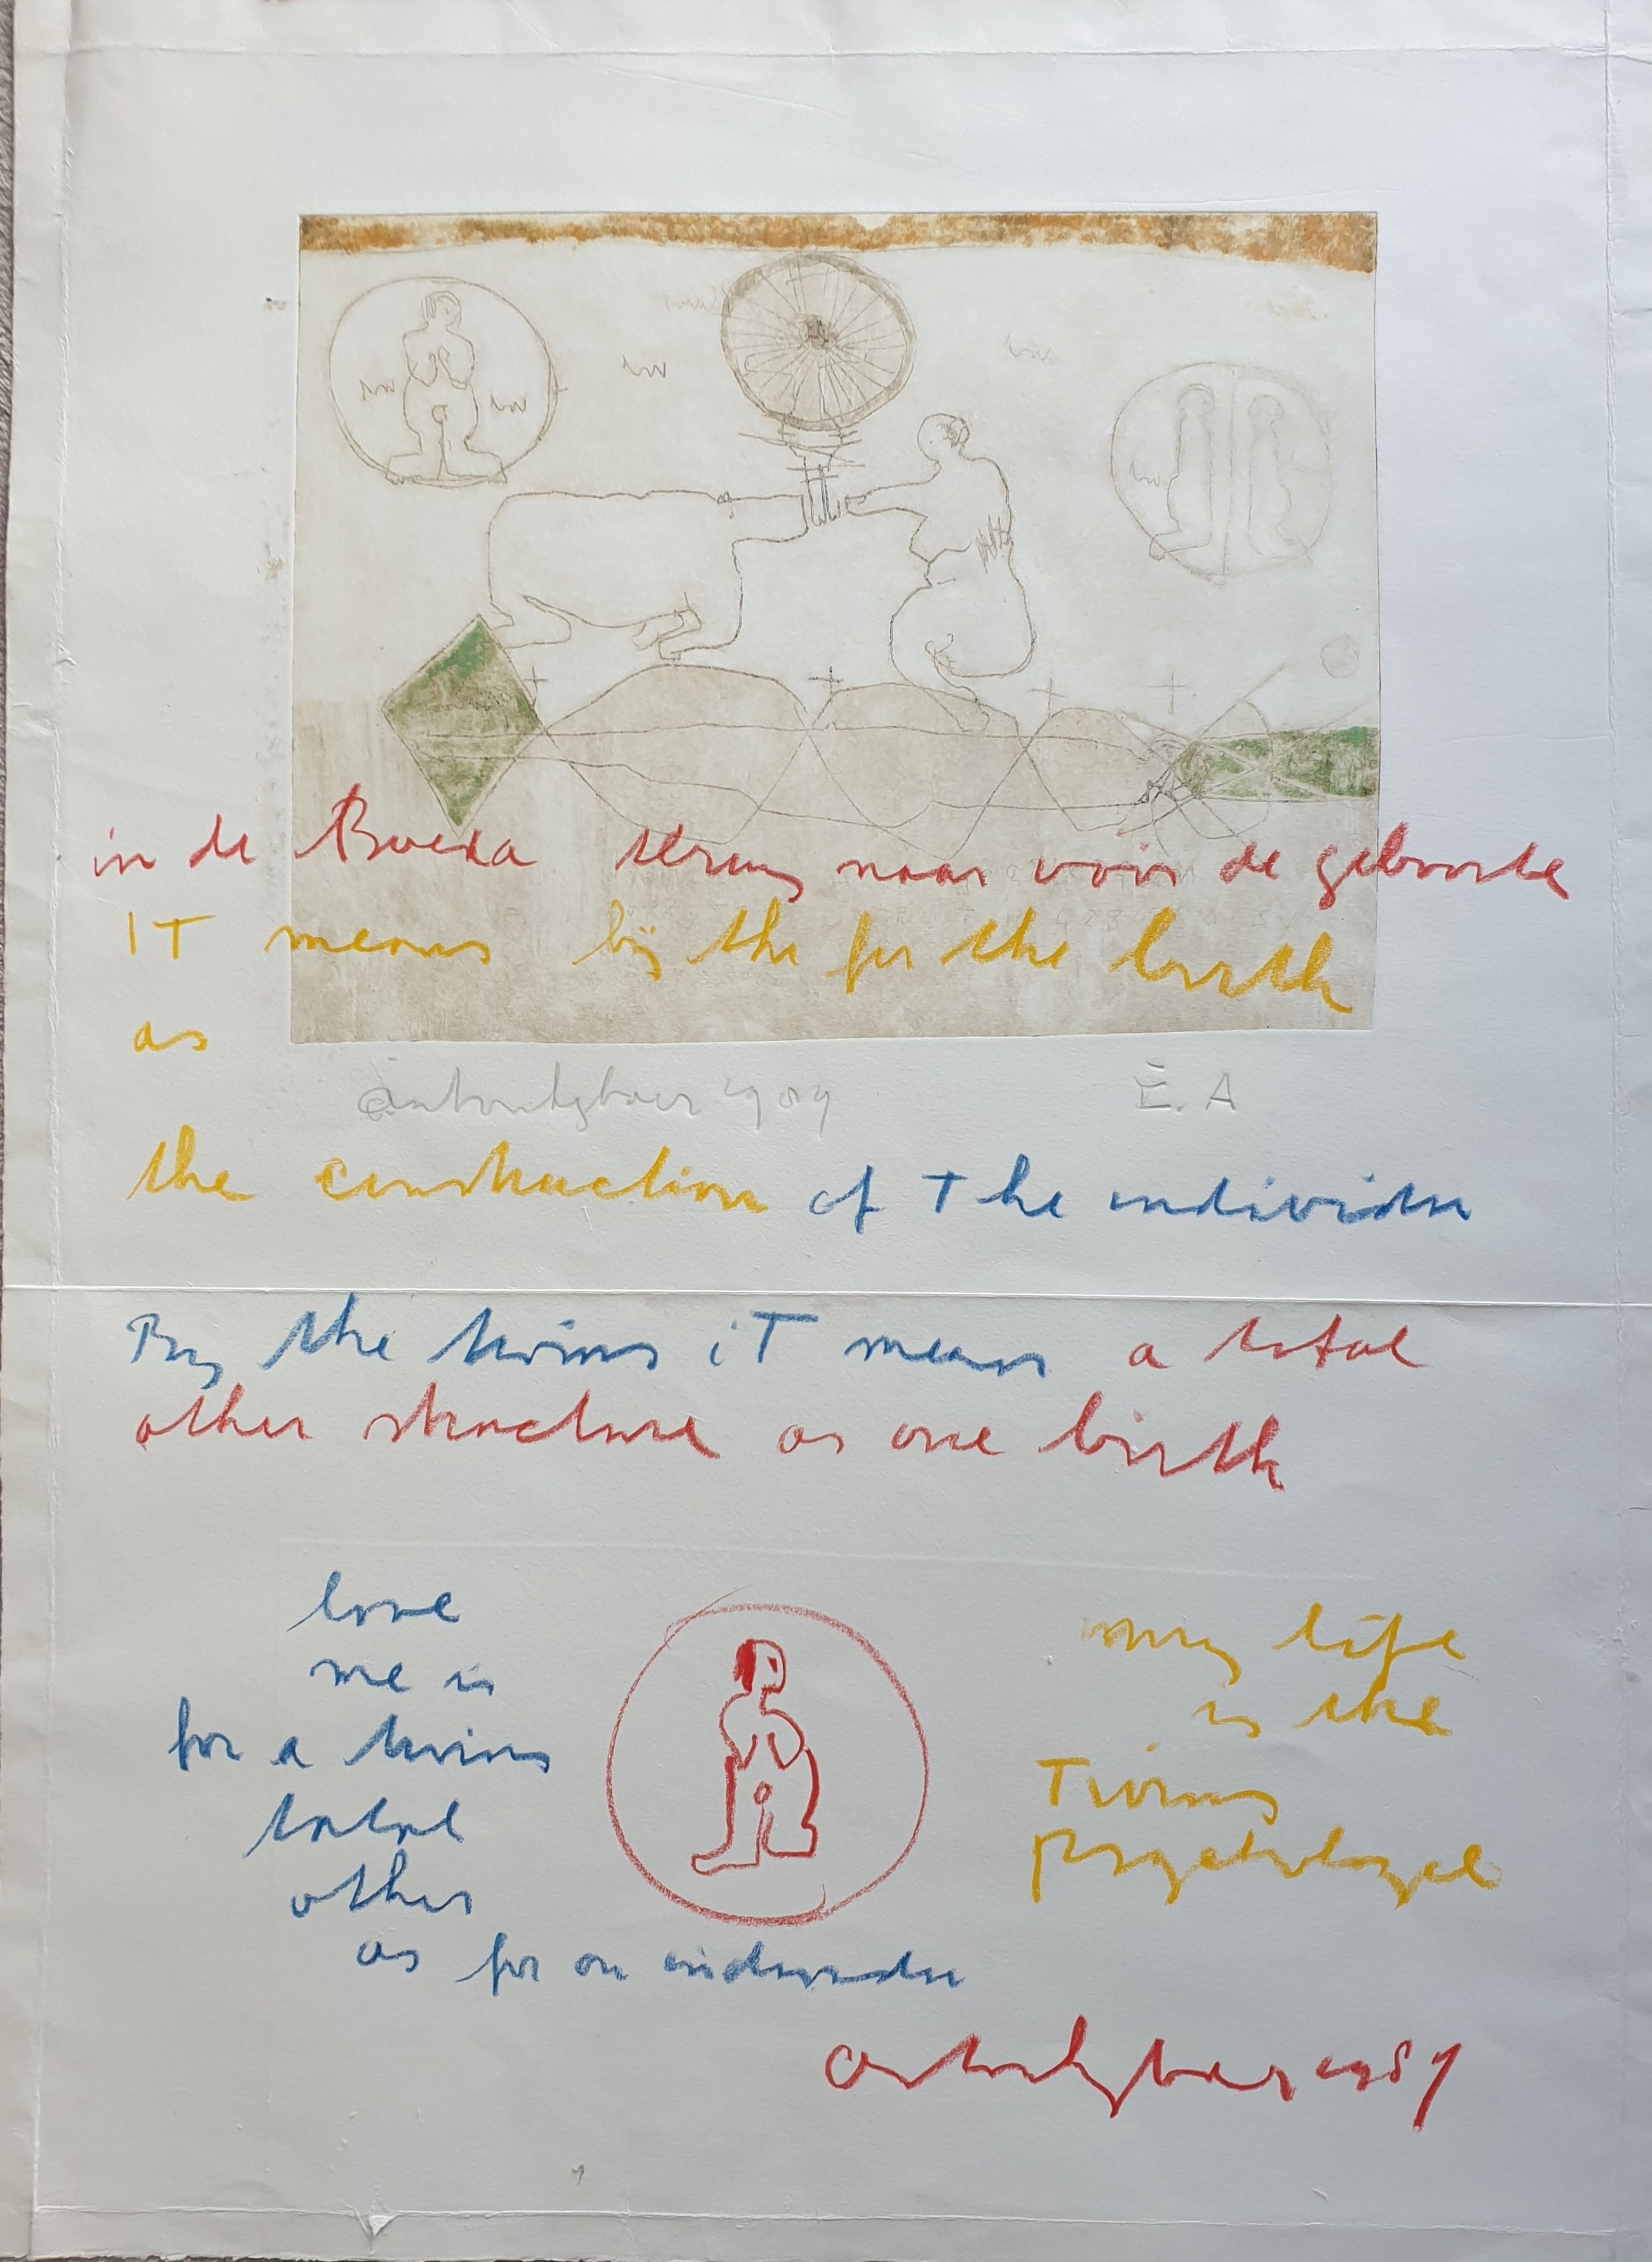 in de Boeda terug naar vóór de geboorte
IT means bij the for the birth
as
E.A
the construction of The individu
By the twins iT means a total
other structure as one birth
love
me is
for a twins
total
other
as for an individu
my life
is the
Twins